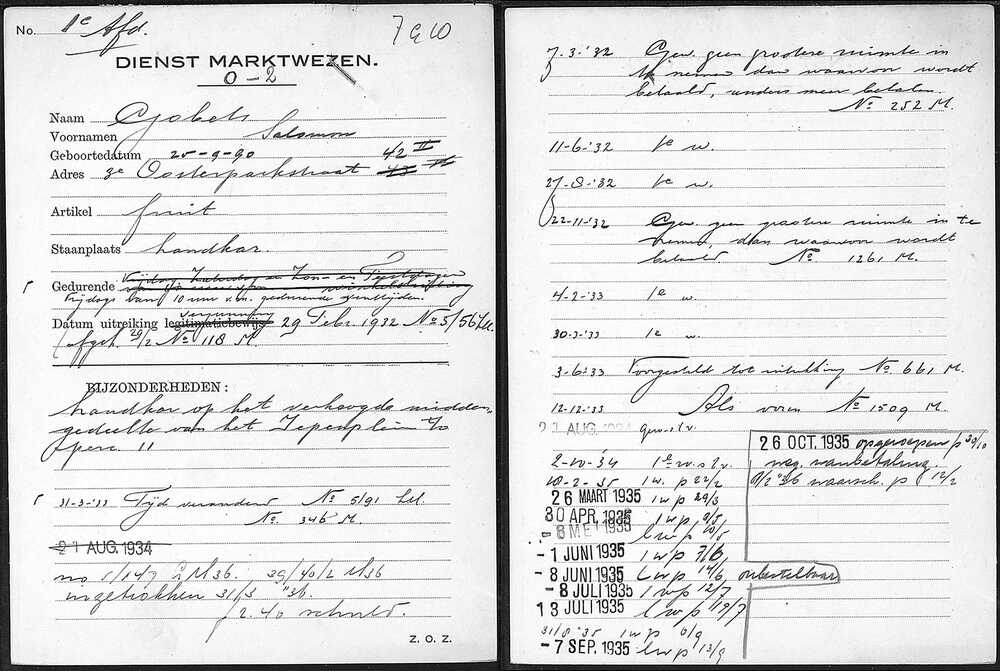 No. 1e Afd.
7910
DIENST MARKTWEZEN.
0-2
Naam Gobets
Voornamen Salomon
Geboortedatum 25-9-90 42 II
Adres 3e Oosterparkstraat
Artikel fruit
Staanplaats handkar.
Gedurende Vrijdag Zaterdag en Zon- en Feestdagen
Vrijdags van 10 uur v.m. gedurende venttijden.
vergunning
Datum uitreiking legitimatiebewijs 29 Febr. 1932 No 5/567
(afgeh. 29/2 No 118 M.
BIJZONDERHEDEN:
handkar op het verhoogde midden-
gedeelte van het Iepenplein t/o
perc. 11
31-3-'33 Tijd veranderd No 5/91
No. 346 M.
21 AUG. 1934
no 5/147 M36. 39/40/2 M36
ingetrokken 31/3 '36.
f 2.40 schuld.
Z. O. Z.
7-3-'32 Gew. geen grootere ruimte in
te nemen dan waarvoor wordt
betaald, anders meer betalen.
No 252 M.
11-6-'32 1e w.
27-8-'32 1e w.
22-11-'32 Gew. geen grootere ruimte in te
nemen, dan waarvoor wordt
betaald. No 1261 M.
4-2-'33 1e w.
30-3-'33 1e w.
3-6-'33 Voorgesteld tot intrekking No 661 M.
12-12-'33 Als voren No 1509 M.
21 AUG. 1934
26 OCT. 1935 opgeroepen p 30/10
weg. wanbetaling.
8/2 '36 waarsch. p 12/2
2-10-'34
18-2-35 1 w. p 22/2
26 MAART 1935 1 w p 29/3
30 APR. 1935 1 w p 3/5
8 MEI 1935 1 w p 10/5
-1 JUNI 1935 1 w p 7/6
-8 JUNI 1935 1 w p 14/6 onbestelbaar
-8 JULI 1935 1 w p 12/7
13 JULI 1935 1 w p 19/7
31/8 '35 1 w p 6/9
-7 SEP. 1935 1 w p 13/9